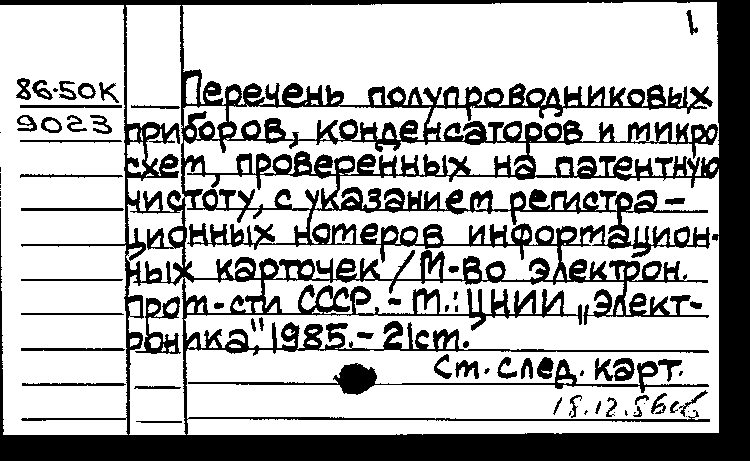 1.
86-50К Перечень полупроводниковых
9023 приборов, конденсаторов и микро
схем, проверенных на патентную
чистоту, с указанием регистра-
ционных номеров информацион-
ных карточек / М-во электрон.
пром-сти СССР. - М.: ЦНИИ „Элект-
роника", 1985. - 21 см.
См. след. карт.
18.12.86